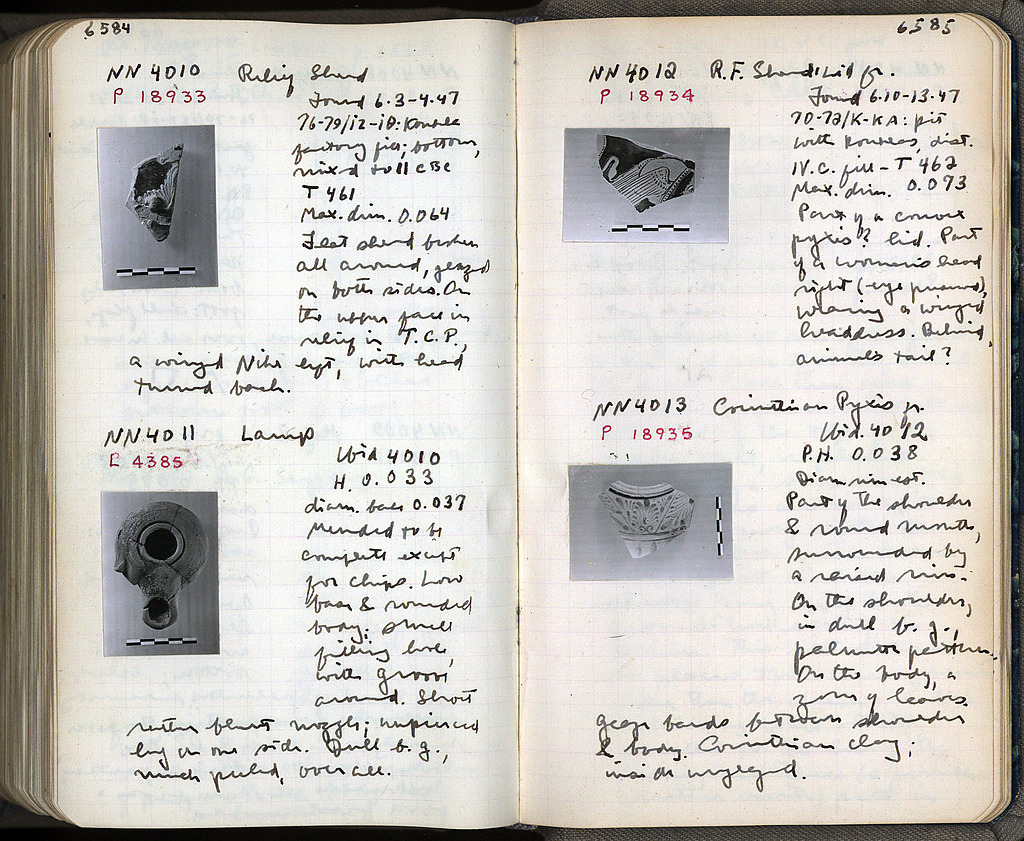 6584
NN 4010 Relief Sherd
P 18933
Found 6.3-4.47
76-79/IZ-IΘ: Koureas
factory fill; bottom,
mixed to II c BC
T 461
Max. dim. 0.064
Flat sherd broken
all around, glazed
on both sides. On
the upper face in
relief in T.C.P.,
a winged Nike left, with head
turned back.
NN 4011 Lamp
L 4385
Ibid 4010
H. 0.033
diam. base 0.037
Mended to be
complete except
for chips. Low
base & rounded
body; small
filling hole,
with groove
around. Short
rather blunt nozzle; unpierced
lug on one side. Dull b. g.,
much peeled, over all.
6585
NN 4012 R.F. Sherd: Lid fr.
P 18934
Found 6.10-13.47
70-72/K-KA: pit
with Koureas, dist.
IV. C. fill - T 462
Max. dim. 0.073
Part of a convex
pyxis? lid. Part
of a woman's head
right (eye preserved),
wearing a winged
headdress. Behind,
animal's tail?
NN 4013 Corinthian Pyxis fr.
P 18935
Ibid. 4012
P.H. 0.038
Diam rim est.
Part of the shoulder
& round mouth,
surrounded by
a raised rim.
On the shoulder,
in dull b. g.,
palmette pattern.
On the body, a
zone of leaves.
glaze bands between shoulder
& body. Corinthian clay;
inside unglazed.